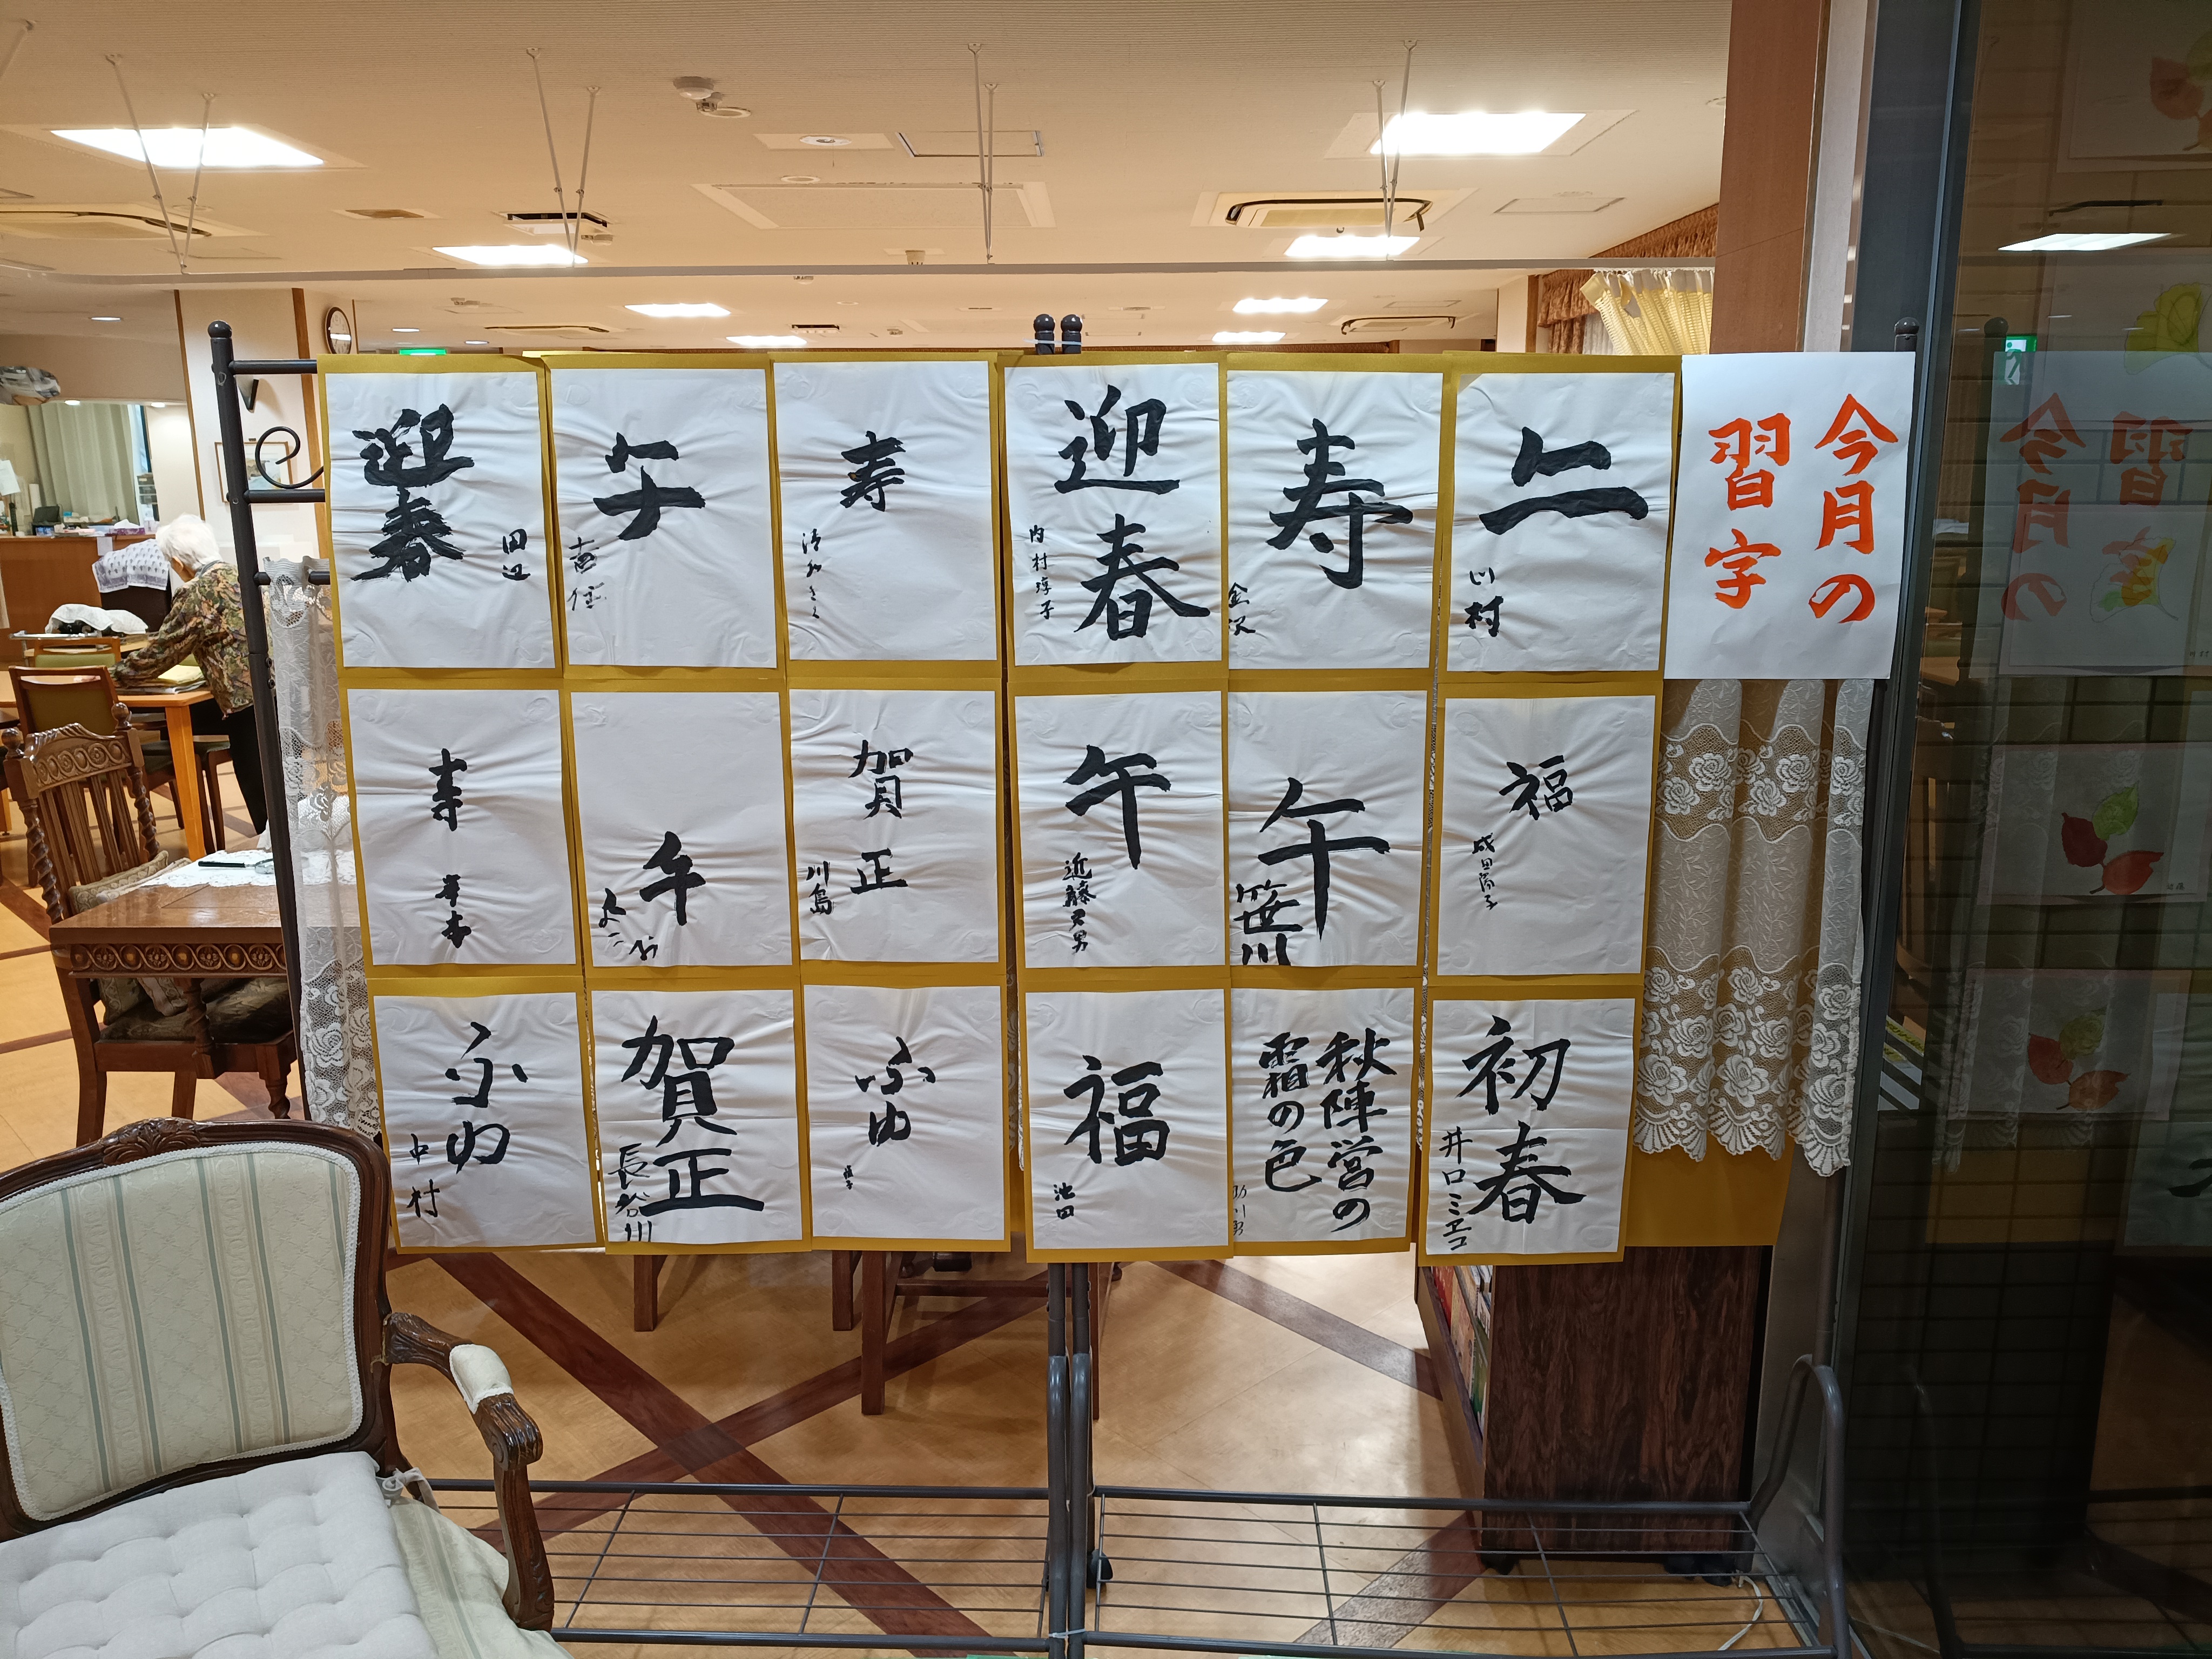 今月の
習字
亠
川村
寿
金沢
迎春
内村淳子
寿
午
迎春
田辺
福
成田
午
笹川
午
近藤
賀正
川島
午
寿
初春
井口ミヱコ
秋陣営の
霜の色
福
池田
ふゆ
賀正
長谷川
ふゆ
中村